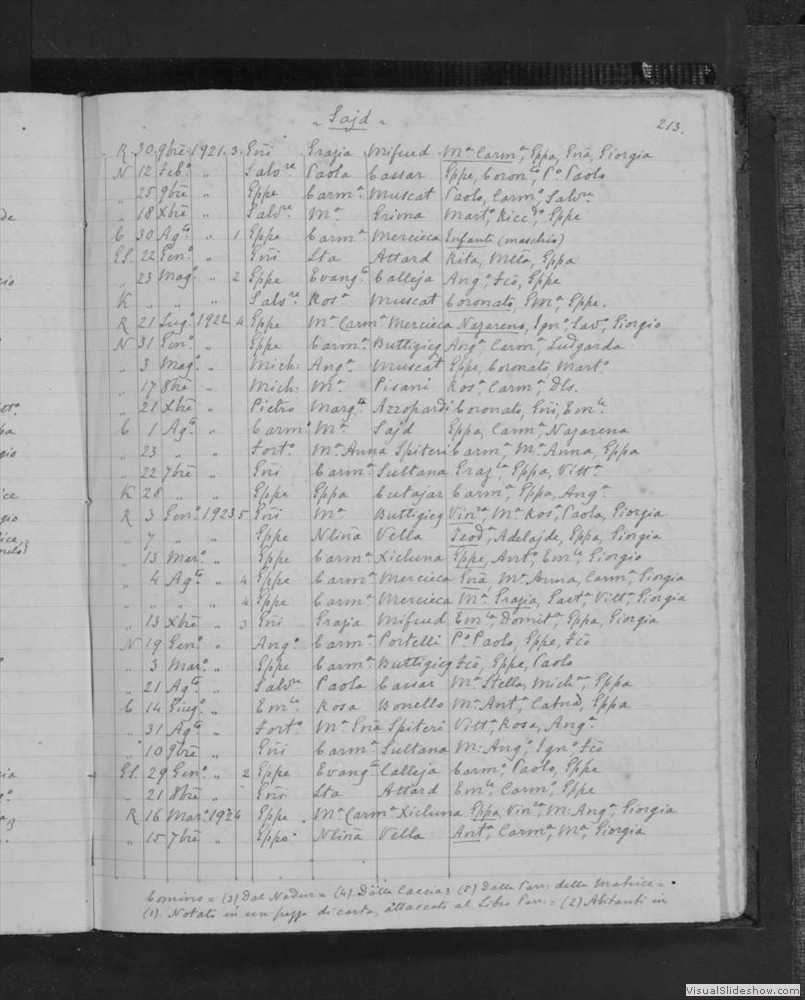 ~ Sajd ~
213.
R 30 9bre 1921 3 Gñi Grazia Mifsud Mª Carmª, Gppa, Gnã, Giorgia
N 12 Febº „ Salvre Paola Cassar Gppe, Coronto, Pº Paolo
„ 25 9bre „ Gppe Carmª Muscat Paolo, Carmº, Salvre
„ 18 Xbre „ Salvre Mª Grima Martº, Riccdo, Gppe
C 30 Agto „ 1 Gppe Carmª Mercieca Infante (maschio)
GS. 22 Genº „ Gñi Sta Attard Rita, Gppa
„ 23 Magº „ 2 Gppe Evangta Calleja Angº, Fcõ, Gppe
K „ „ „ Salvre Rosª Muscat Coronato, Emª, Gppe.
R 21 Lugº 1922 4 Gppe Mª Carmª Mercieca Nazareno, Ignº, Savº, Giorgio
N 31 Genº „ Gppe Carmª Buttigieg Angª, Carmª, Ludgarda
„ 3 Magº „ Mich: Angª Muscat Gppe, Coronato, Martº
„ 17 8bre „ Mich: Mª Pisani Rosª, Carmª, Dls.
„ 21 Xbre „ Pietro Margta Azzopardi Coronato, Gñi, Emle
C 1 Agº „ Carmº Mª Sajd Gppa, Carmª, Nazarena
„ 23 „ „ Fortº Mª Anna Spiteri Carmª, Mª Anna, Gppa
„ 22 7bre „ Gñi Carmª Sultana Grazla, Gppa, Vittª
K 28 „ „ Gppe Gppa Cutajar Carmª, Gppa, Angª
R 3 Genº 1923 5 Gñi Mª Buttigieg Vinza, Mª Rosª, Paola, Giorgia
„ 7 „ „ Gppe Nlinã Vella Teodª, Adelajde, Gppa, Giorgia
„ 13 Marº „ Gppe Carmª Xicluna Gppe, Antº, Emle, Giorgio
„ 4 Agto „ 4 Gppe Carmª Mercieca Gnã, Mª Anna, Carmª, Giorgia
„ „ „ „ 4 Gppe Carmª Mercieca Mª Grazia, Gaetª, Vittª, Giorgia
„ 13 Xbre „ 3 Gñi Grazia Mifsud Emla, Domitª, Gppa, Giorgia
N 19 Genº „ Angº Carmª Portelli Pº Paolo, Gppe, Fcõ
„ 3 Marº „ Gppe Carmª Buttigieg Fcõ, Gppe, Paolo
„ 21 Agto „ Salvre Paola Cassar Mª Stella, Michna, Gppa
C 14 Giugº „ Emle Rosa Bonello Mª Antª, Catnã, Gppa
„ 31 Agto „ Fortº Mª Gnã Spiteri Vittª, Rosa, Angª
„ 10 9bre „ Gñi Carmª Sultana M: Angº, Ignº, Fcõ
GS. 29 Genº „ 2 Gppe Evangta Calleja Carmº, Paolo, Gppe
„ 21 8bre „ Gñi Sta Attard Emle, Carmº, Gppe
R 16 Marº 1924 Gppe Mª Carmª Xicluna Gppa, Vinza, M: Angª, Giorgia
„ 15 7bre Gppe Nlinã Vella Antª, Carmª, Mª, Giorgia
Comino = (3) Dal Nadur = (4) Dalla Caccia = (5) Dalla Parr: della Matrice =
(1). Notato in un pezzo di carta, attaccato al Libro Parr: = (2) Abitanti in
VisualSlideshow.com